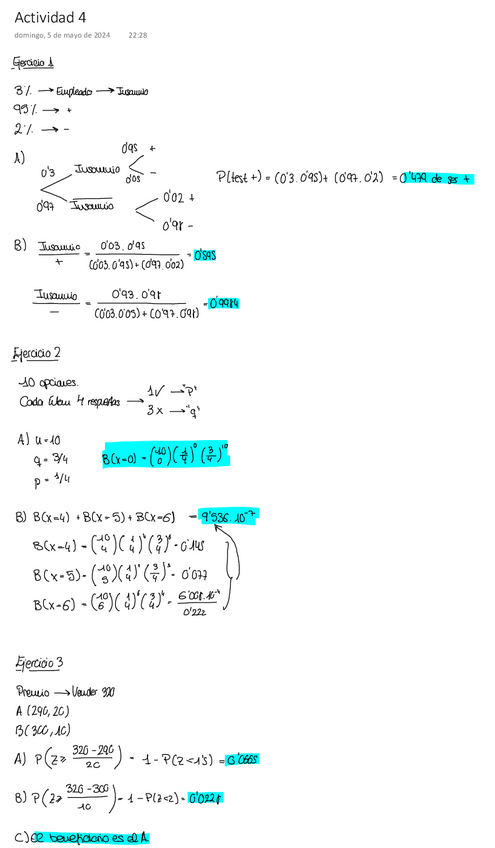 Actividad 4
domingo, 5 de mayo de 2024 22:28
Ejercicio 1
3% → Empleado → Insomnio
95% → +
2% → -
A)
0'3 Insomnio 0'95 +
0'05 -
0'97 Insomnio 0'02 +
0'98 -
P(test +) = (0'3 · 0'95) + (0'97 · 0'2) = 0'479 de ser +
B) Insomnio / + = 0'03 · 0'95 / (0'03 · 0'95) + (0'97 · 0'02) = 0'595
Insomnio / - = 0'93 · 0'98 / (0'03 · 0'05) + (0'97 · 0'98) = 0'9984
Ejercicio 2
10 opciones.
Cada 4 respuestas → 1✓ → "p"
3 x → "q"
A) n = 10
q = 3/4
p = 1/4
B(x=0) = (10 0) (1/4)^0 (3/4)^10
B) B(x=4) + B(x=5) + B(x=6) = 9'536 · 10^-7
B(x=4) = (10 4) (1/4) (3/4) = 0'145
B(x=5) = (10 5) (1/4) (3/4) = 0'077
B(x=6) = (10 6) (1/4) (3/4) =
0'222
Ejercicio 3
Premio → Vender 320
A (290, 20)
B (300, 10)
A) P(Z ≥ 320-290 / 20) = 1 - P(Z < 1'5) = 0'0668
B) P(Z ≥ 320-300 / 10) = 1 - P(Z < 2) = 0'0228
C) El beneficiario es el A